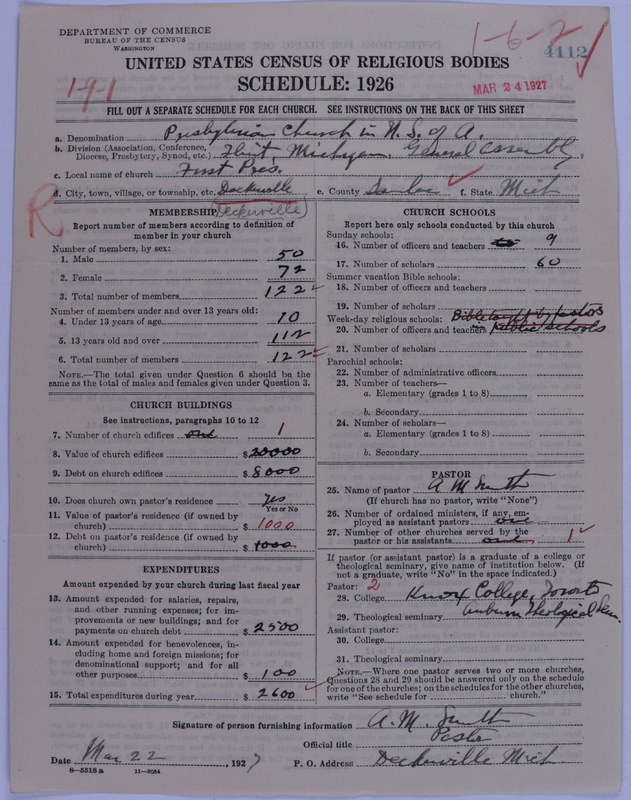 DEPARTMENT OF COMMERCE
BUREAU OF THE CENSUS
WASHINGTON
1-6-2
4112
UNITED STATES CENSUS OF RELIGIOUS BODIES
SCHEDULE: 1926
1-9-1
MAR 24 1927
FILL OUT A SEPARATE SCHEDULE FOR EACH CHURCH. SEE INSTRUCTIONS ON THE BACK OF THIS SHEET
a. Denomination Presbyterian Church in U. S. of A.
b. Division (Association, Conference, Diocese, Presbytery, Synod, etc.) Flint, Michigan, General Assembly
c. Local name of church First Pres.
d. City, town, village, or township, etc. Deckerville e. County Sanilac f. State Mich
R
Deckerville
MEMBERSHIP
Report number of members according to definition of member in your church
Number of members, by sex:
1. Male 50
2. Female 72
3. Total number of members 122
Number of members under and over 13 years old:
4. Under 13 years of age 10
5. 13 years old and over 112
6. Total number of members 122
NOTE.—The total given under Question 6 should be the same as the total of males and females given under Question 3.
CHURCH BUILDINGS
See instructions, paragraphs 10 to 12
7. Number of church edifices one 1
8. Value of church edifices $ 20000
9. Debt on church edifices $ 8000
10. Does church own pastor's residence yes
Yes or No
11. Value of pastor's residence (if owned by church) $ 1000
12. Debt on pastor's residence (if owned by church) $ 1000
EXPENDITURES
Amount expended by your church during last fiscal year
13. Amount expended for salaries, repairs, and other running expenses; for improvements or new buildings; and for payments on church debt $ 2500
14. Amount expended for benevolences, including home and foreign missions; for denominational support; and for all other purposes $ 100
15. Total expenditures during year $ 2600
CHURCH SCHOOLS
Report here only schools conducted by this church
Sunday schools:
16. Number of officers and teachers 9
17. Number of scholars 60
Summer vacation Bible schools:
18. Number of officers and teachers
19. Number of scholars
Week-day religious schools: Bible taught by pastors
20. Number of officers and teachers in public schools
21. Number of scholars
Parochial schools:
22. Number of administrative officers
23. Number of teachers—
a. Elementary (grades 1 to 8)
b. Secondary
24. Number of scholars—
a. Elementary (grades 1 to 8)
b. Secondary
PASTOR
25. Name of pastor A M Smith
(If church has no pastor, write "None")
26. Number of ordained ministers, if any, employed as assistant pastors one
27. Number of other churches served by the pastor or his assistants one 1
If pastor (or assistant pastor) is a graduate of a college or theological seminary, give name of institution below. (If not a graduate, write "No" in the space indicated.)
Pastor: 2
28. College Knox College, Toronto
29. Theological seminary Auburn Theological Sem.
Assistant pastor:
30. College
31. Theological seminary
NOTE.—Where one pastor serves two or more churches, Questions 28 and 29 should be answered only on the schedule for one of the churches; on the schedules for the other churches, write "See schedule for church."
Signature of person furnishing information A. M. Smith
Official title Pastor
Date Mar 22, 1927 P. O. Address Deckerville Mich
8—5518 a 11—9054